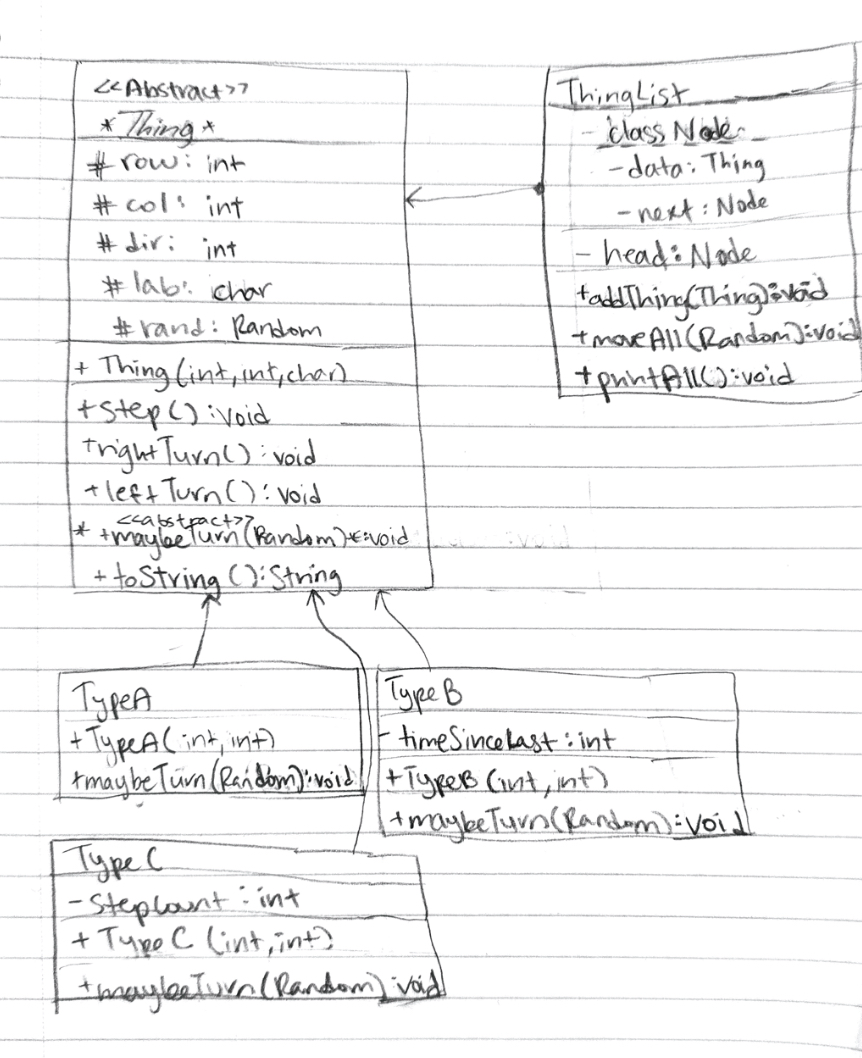 <<Abstract>>
*Thing*
# row: int
# col: int
# dir: int
# lab: char
# rand: Random
+ Thing(int,int,char)
+step():void
+rightTurn():void
+leftTurn():void
<<abstract>>
* +maybeTurn(Random)*:void
+toString():String
ThingList
- class Node
- data: Thing
- next: Node
- head: Node
+addThing(Thing):void
+moveAll(Random):void
+printAll():void
TypeA
+TypeA(int,int)
+maybeTurn(Random):void
TypeB
- timeSinceLast:int
+TypeB(int,int)
+maybeTurn(Random):void
TypeC
- StepCount:int
+ TypeC(int,int)
+maybeTurn(Random):void